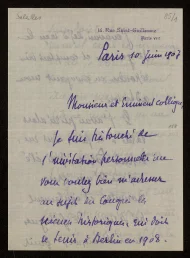 14 Rue Saint-Guillaume
Paris 10 Juin 1907
Monsieur et Eminent collègue
Je suis très honoré de
l'invitation personnelle que
vous voulez bien m'adresser
au sujet du Congrès des
sciences historiques, qui doit
se tenir à Berlin en 1908.